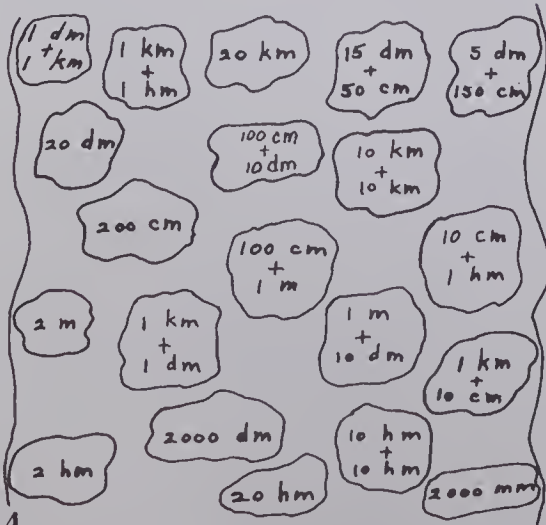 1 dm
+
1 km
1 km
+
1 hm
20 km
15 dm
+
50 cm
5 dm
+
150 cm
20 dm
100 cm
+
10 dm
10 km
+
10 km
200 cm
100 cm
+
1 m
10 cm
+
1 hm
2 m
1 km
+
1 dm
1 m
+
10 dm
1 km
+
10 cm
2000 dm
10 hm
+
10 hm
2 hm
20 hm
2000 mm